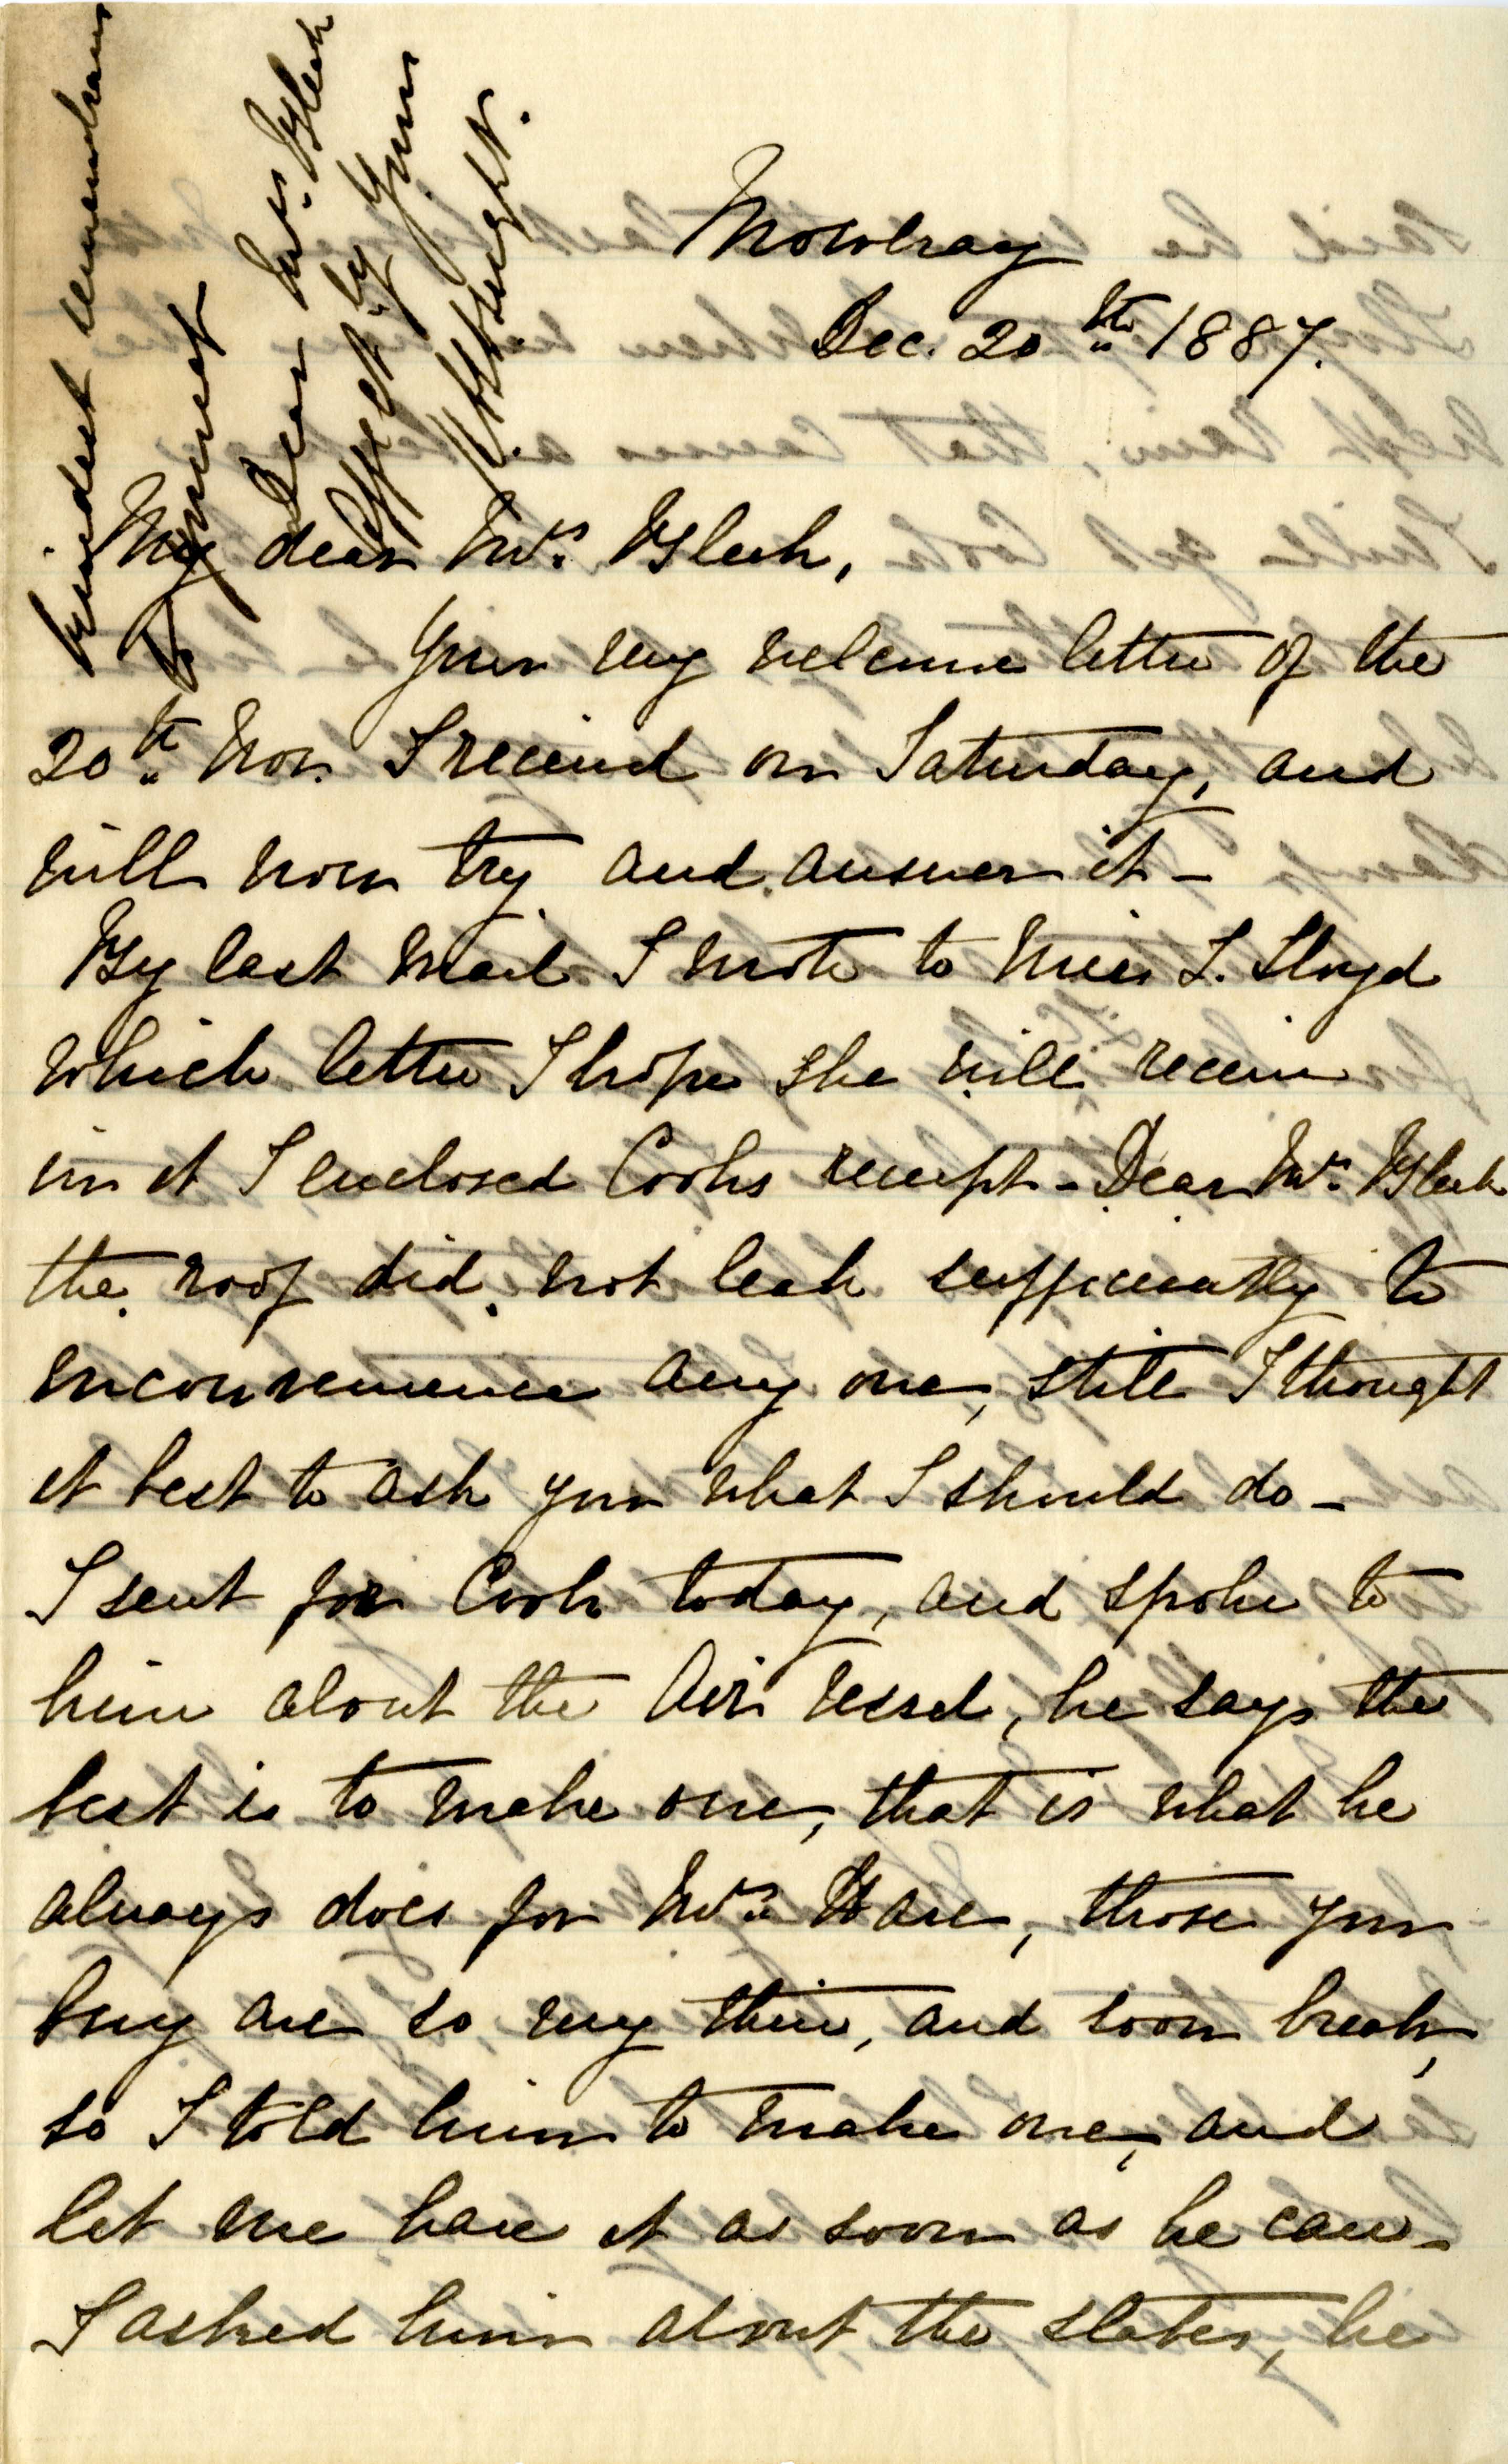 Mowbray
Dec. 20th 1887.
My dear Mrs. Bleek,
Your very welcome letter of the
20th Nov. I received on Saturday, and
will now try and answer it -
By last mail I wrote to Miss L. Lloyd
which letter I hope she will receive
in it I enclosed Cooks receipt - Dear Mrs. Bleek
the roof did not leak sufficiently to
inconvenience any one, still I thought
it best to ask you what I should do -
I sent for Cook today, and spoke to
him about the Air Vessel, he says the
best is to make one, that is what he
always does for Mrs. Hare, those you
buy are so very thin, and soon break,
so I told him to make one, and
let me have it as soon as he can -
I asked him about the slates, he
kindest remembrances
Dear Mrs. Bleek
Yours